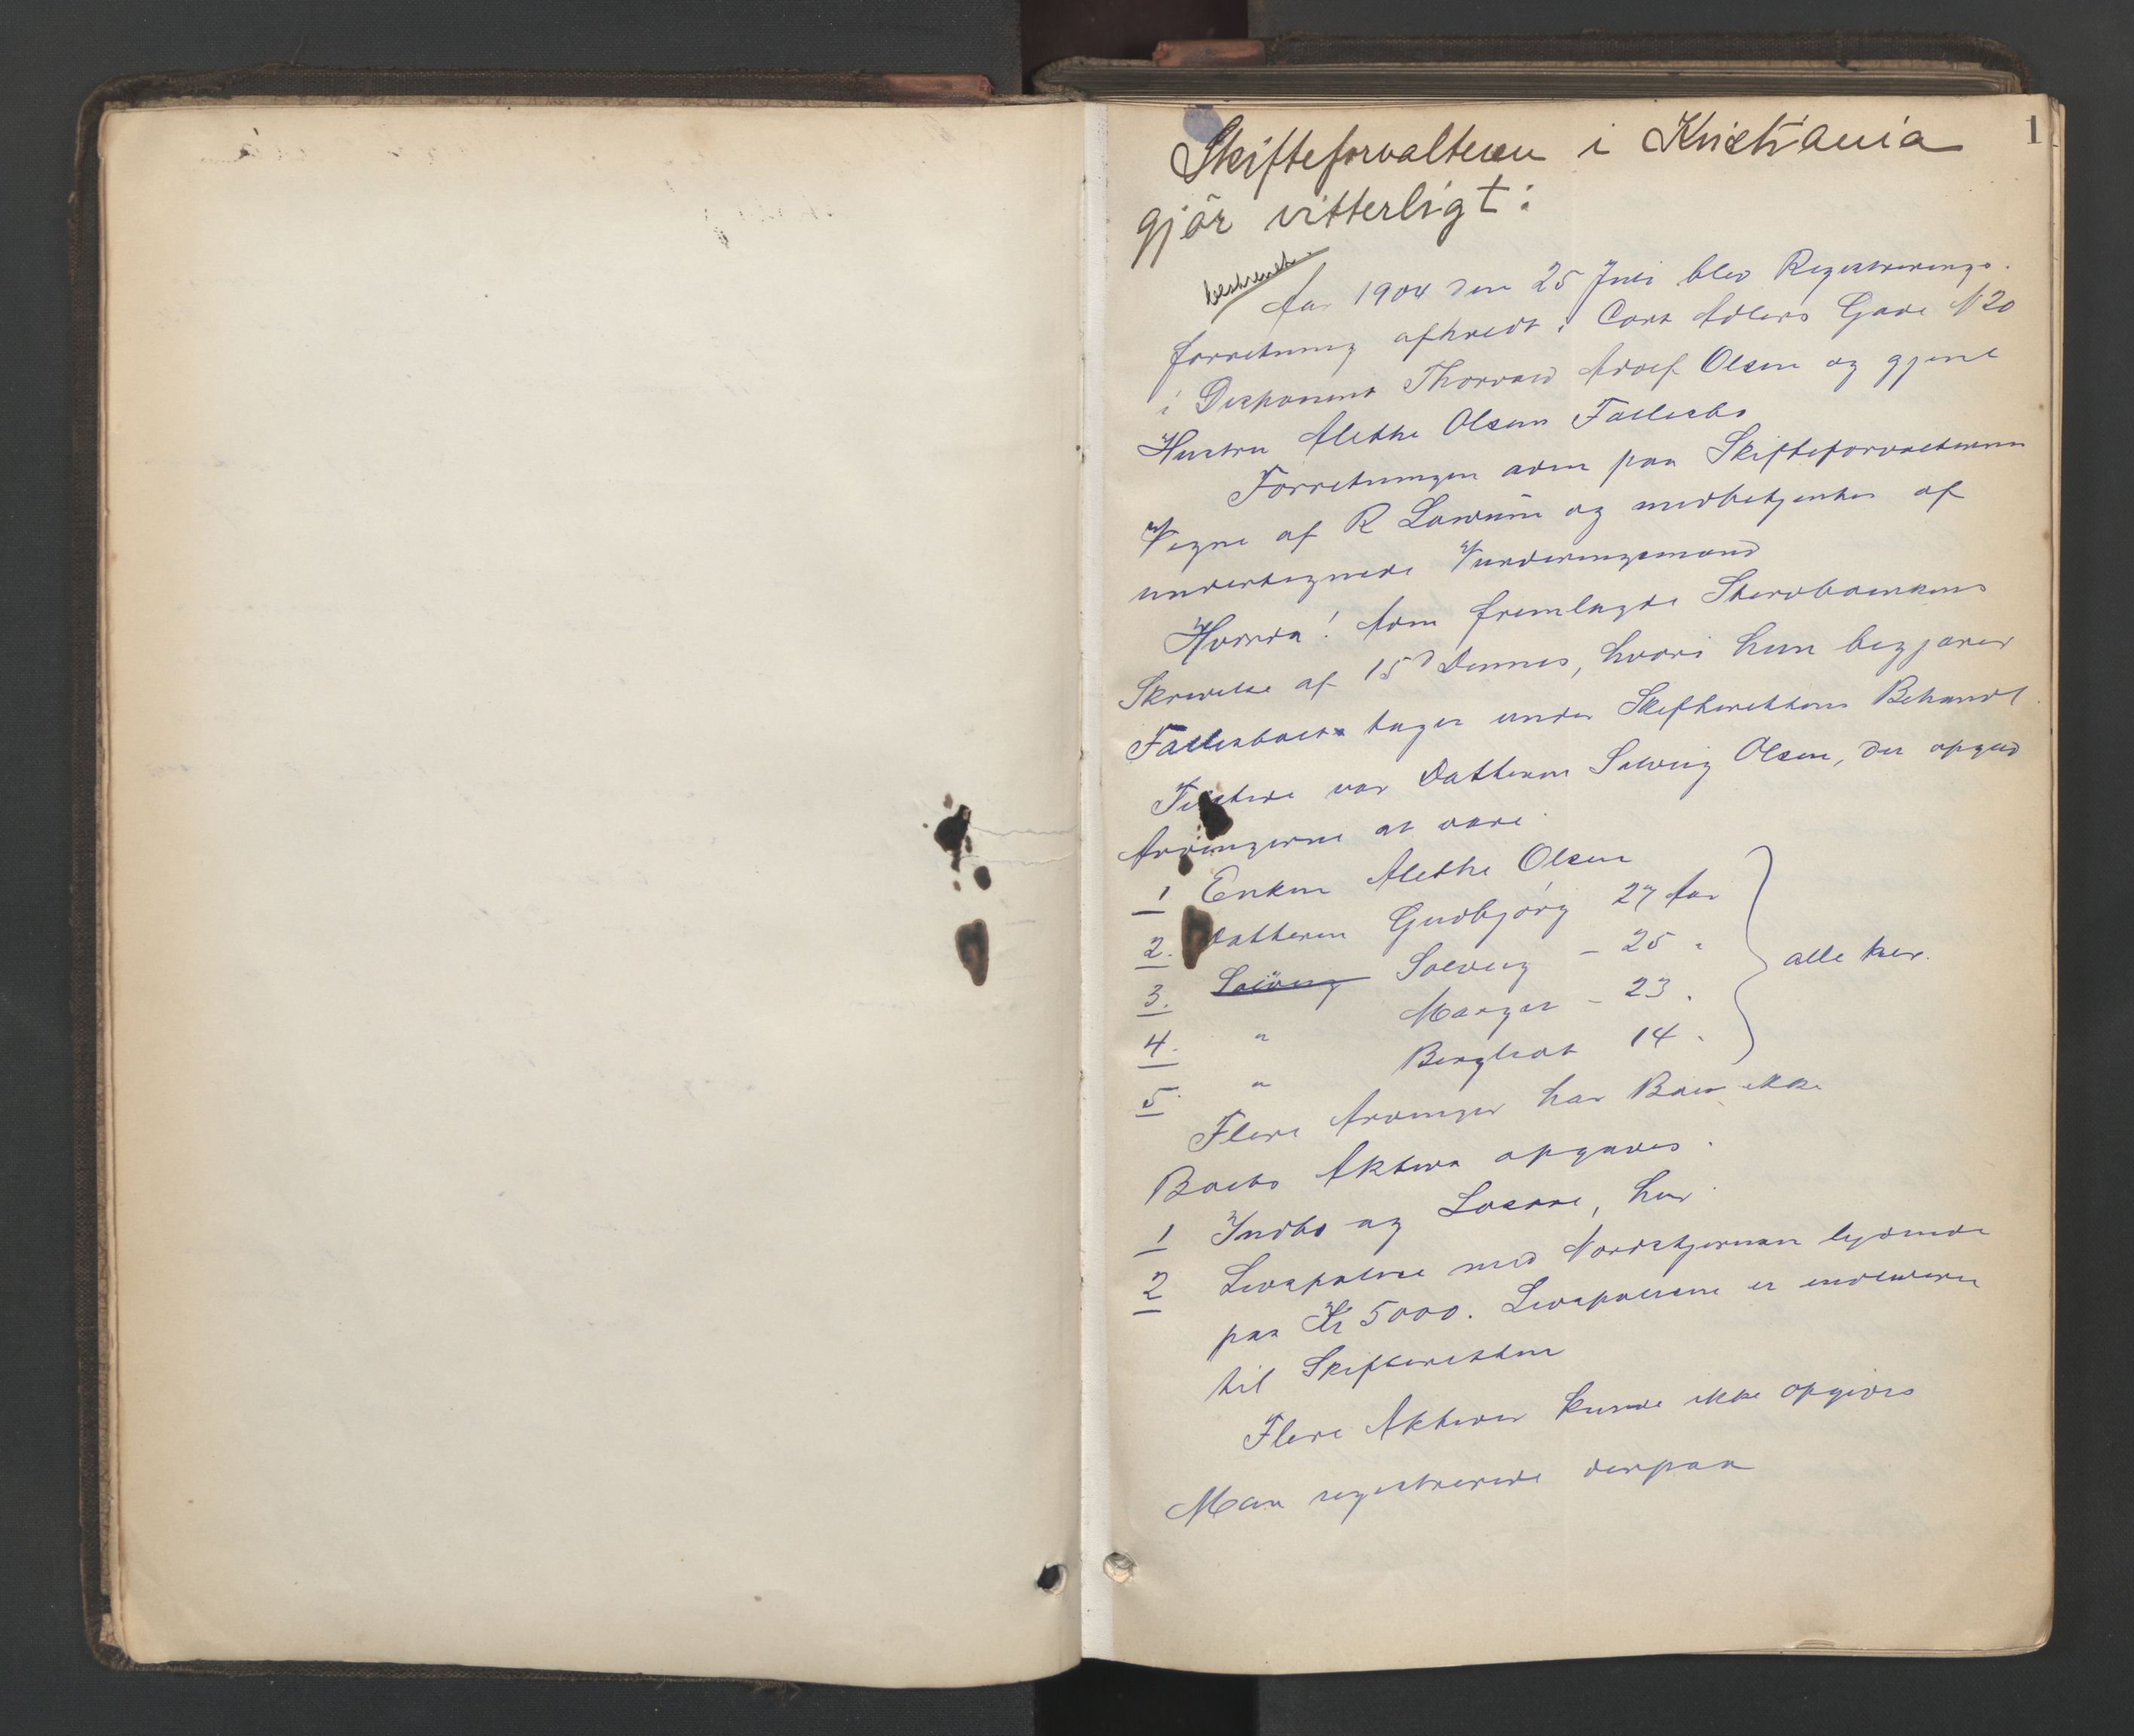 1
Skifteforvalteren i Kristiania
gjör vitterligt:
beskrevet.
Aar 1904 den 25 Juli blev Registrerings-
forretning afholdt i Cort Adlers Gade N 20
i Disponent Thorvald Adolf Olsen og gjenl
Hustru Alethe Olsens Fællesbo
Forretningen adm paa Skifteforvalterens
Vegne af R og medbetjentes af
undertegnede Vurderingsmand
Hvorda! Adm fremlagde Stervboenkens
Skrivelse af 15d Dennes, hvori hun begjærer
Fællesboet taget under Skifterettens Behandl.
Tilstede var Datteren Solveig Olsen, der opgav
Arvingerne at være
1 Enken Alethe Olsen
2. Datteren Gudbjörg 27 Aar
3. Solveig Solveig - 25 "
4. " Margit - 23 "
5. " Bergliot 14 "
alle her.
Flere Arvinger har Boet ikke
Boets Aktiva opgaves.
1 Indbo og Lösöre, her
2 Livspolice med Nordstjernen lydende
paa Kr 5000. Livspolicen er indleveret
til Skifteretten
Flere Aktiver kunde ikke opgives
Man registrerede derpaa